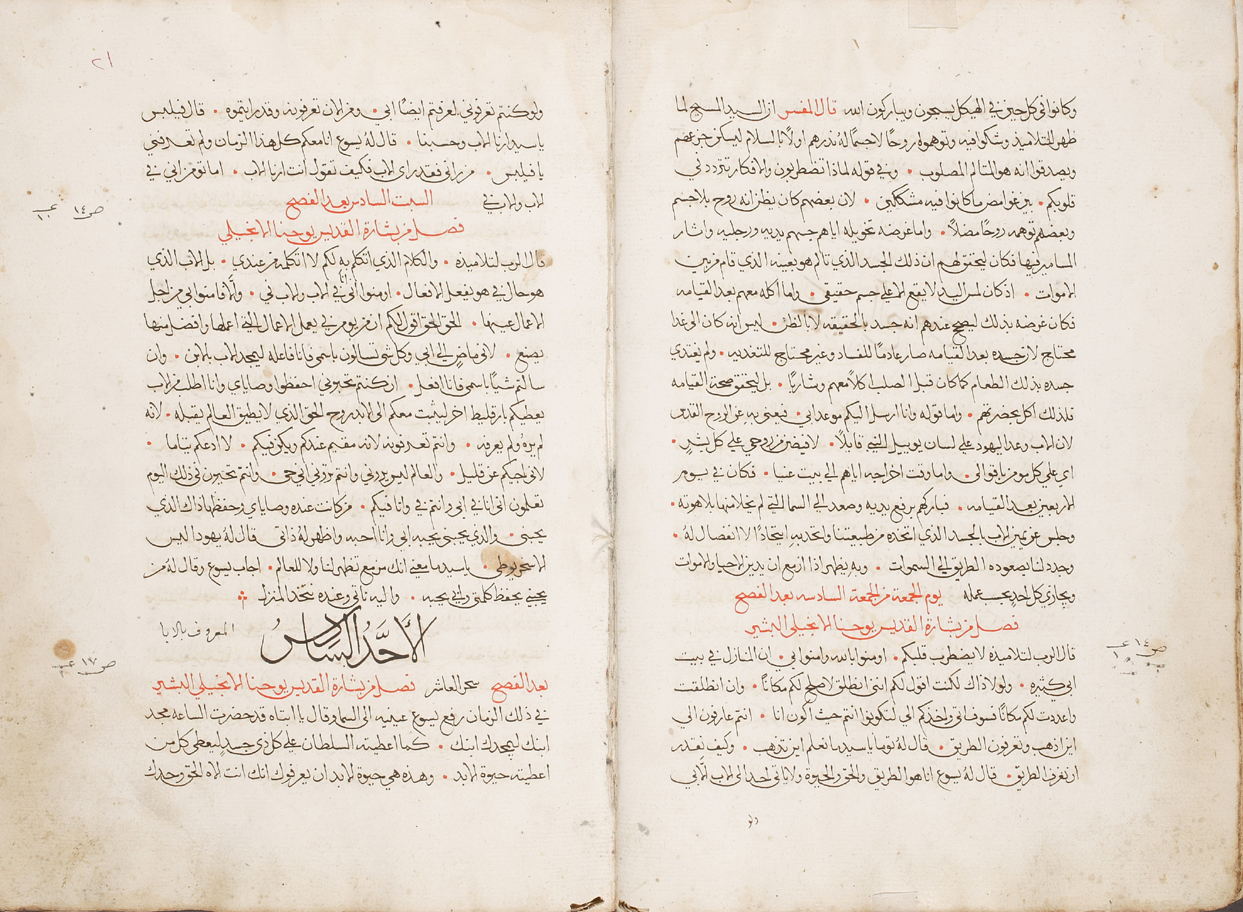 وكانوا في كل حين في الهيكل يسبحون ويباركون الله • قال المفسر ان السيد المسيح لما
ظهر للتلاميذ وشكوا فيه وتوهموه روحًا لا جسمًا له بدرهم اولًا بالسلام ليسكن جزعهم
ويصدقوا انه هو المتالم المصلوب • وفي قوله لماذا تضطربون والافكار تتردد في
قلوبكم • بين غوامض ما كانوا فيه متشككين • لان بعضهم كان يظن انه روح بلا جسم
وبعضهم توهمه روحًا مضلًا • واما غرضه بتخويله اياهم جسهم يديه ورجليه واثار
المسامير فيها فكان ليحقق لهم ان ذلك الجسد الذي تالم هو بعينه الذي قام من بين
الاموات • اذ كان لمس اليد لا يقع الا على جسم حقيقي • واما اكله معهم بعد القيامه
فكان غرضه بذلك ليصح عندهم انه جسد بالحقيقه لا بالظن • ليس انه كان الى غدا
محتاج لان جسده بعد القيامه صار عادمًا للفساد وغير محتاج للتغذيه • ولم يغتدي
جسده بذلك الطعام كما كان قبل الصلب اكلًا معهم وشاربًا • بل ليتحقق صحة القيامه
فلذلك اكل بحضرتهم • واما قوله وانا ارسل اليكم موعد ابي • فيعني به عن الروح القدس
لان الاب وعد اليهود على لسان يوييل النبي قايلًا • لافيضن من روحي على كل بشر •
اي على كل مومن باقوالي • واما وقت اخراجه اياهم الى بيت عنيا • فكان في يوم
الاربعين بعد القيامه • فباركهم برفع يديه وصعد الى السما التي لم يخلا منها بلاهوته •
وجلس عن يمين الاب بالجسد الذي اتخذه من طبيعتنا واتحد به اتحادًا لا انفصال له •
وجدد لنا بصعوده الطريق الى السموات • وبه يظهر اذا ازمع ان يدين الاحيا والاموات
ويجازي كل احد بحسب عمله يوم الجمعة من الجمعة السادسه بعد الفصح
فصل من بشارة القديس يوحنا الانجيلي البشير
قال الرب لتلاميذه لا يضطرب قلبكم • اومنوا بالله وامنوا بي • ان المنازل في بيت
ابي كثيره • ولولا ذاك لكنت اقول لكم انني انطلق لاصلح لكم مكانًا • وان انطلقت
واعددت لكم مكانًا فسوف اتي واخذكم الي لتكونوا انتم حيث اكون انا • انتم عارفون الى
اين اذهب وتعرفون الطريق • قال له توما يا سيد ما نعلم اين تذهب • وكيف نقدر
ان نعرف الطريق • قال له يسوع انا هو الطريق والحق والحيوة ولا ياتي احد الى الاب الا بي
ولو
ص ١٤ عـ ١
٢١
ولو كنتم تعرفوني لعرفتم ايضًا ابي • ومن الان تعرفونه وقد رايتموه • قال فيلبس
يا سيد ارنا الاب وحسبنا • قال له يسوع انا معكم كل هذا الزمان ولم تعرفني
يا فيلبس • من راني فقد راى الاب فكيف تقول انت ارنا الاب • اما تومن اني في
الاب والاب في السبت السادس بعد الفصح
فصل من بشارة القديس يوحنا الانجيلي
ص ١٤ عـ ١٠
قال الرب لتلاميذه • والكلام الذي اتكلم به لكم لا اتكلمه من عندي • بل الاب الذي
هو حال في هو يفعل الافعال • اومنوا اني في الاب والاب في • والا فامنوا بي من اجل
الاعمال عينها • الحق الحق اقول لكم ان من يومن بي يعمل الاعمال التي اعملها وافضل منها
يصنع • لاني ماض الى ابي وكل شي تسالون باسمي فانا فاعله ليمجد الاب بالابن • وان
سالتم شيًا باسمي فانا افعل • ان كنتم تحبوني احفظوا وصاياي وانا اطلب من الاب
يعطيكم بارقليط اخر ليثبت معكم الى الابد روح الحق الذي لا يطيق العالم يقبله • لانه
لم يره ولم يعرفه • وانتم تعرفونه لانه مقيم عندكم ويكون فيكم • لا ادعكم يتاما •
لاني اجيكم عن قليل • والعالم ليس يروني وانتم تروني اني حي • وانتم تحيون في ذلك اليوم
تعلمون اني انا في ابي وانتم في وانا فيكم • من كانت عنده وصاياي وحفظها ذاك الذي
يحبني • والذي يحبني يحبه ابي وانا احبه واظهر له ذاتي • قال له يهودا ليس
الاسخريوطي • يا سيد ما معني انك مزمع تظهر لنا ولا للعالم • اجاب يسوع وقال له من
يحبني يحفظ كلمتي وابي يحبه • واليه ناتي وعنده نتخذ المنزل
الأَحَدُ السَّادسُ المعروف بالابا
بعد الفصح سحر العاشر فصل من بشارة القديس يوحنا الانجيلي البشير
ص ١٧ عـ
في ذلك الزمان رفع يسوع عينيه الى السما وقال يا ابتاه قد حضرت الساعه مجد
ابنك ليمجدك ابنك • كما اعطيته السلطان على كل ذي جسد ليعطي كل من
اعطيته حيوة الابد • وهذه هي حيوة الابد ان يعرفوك انك انت الاه الحق وحدك